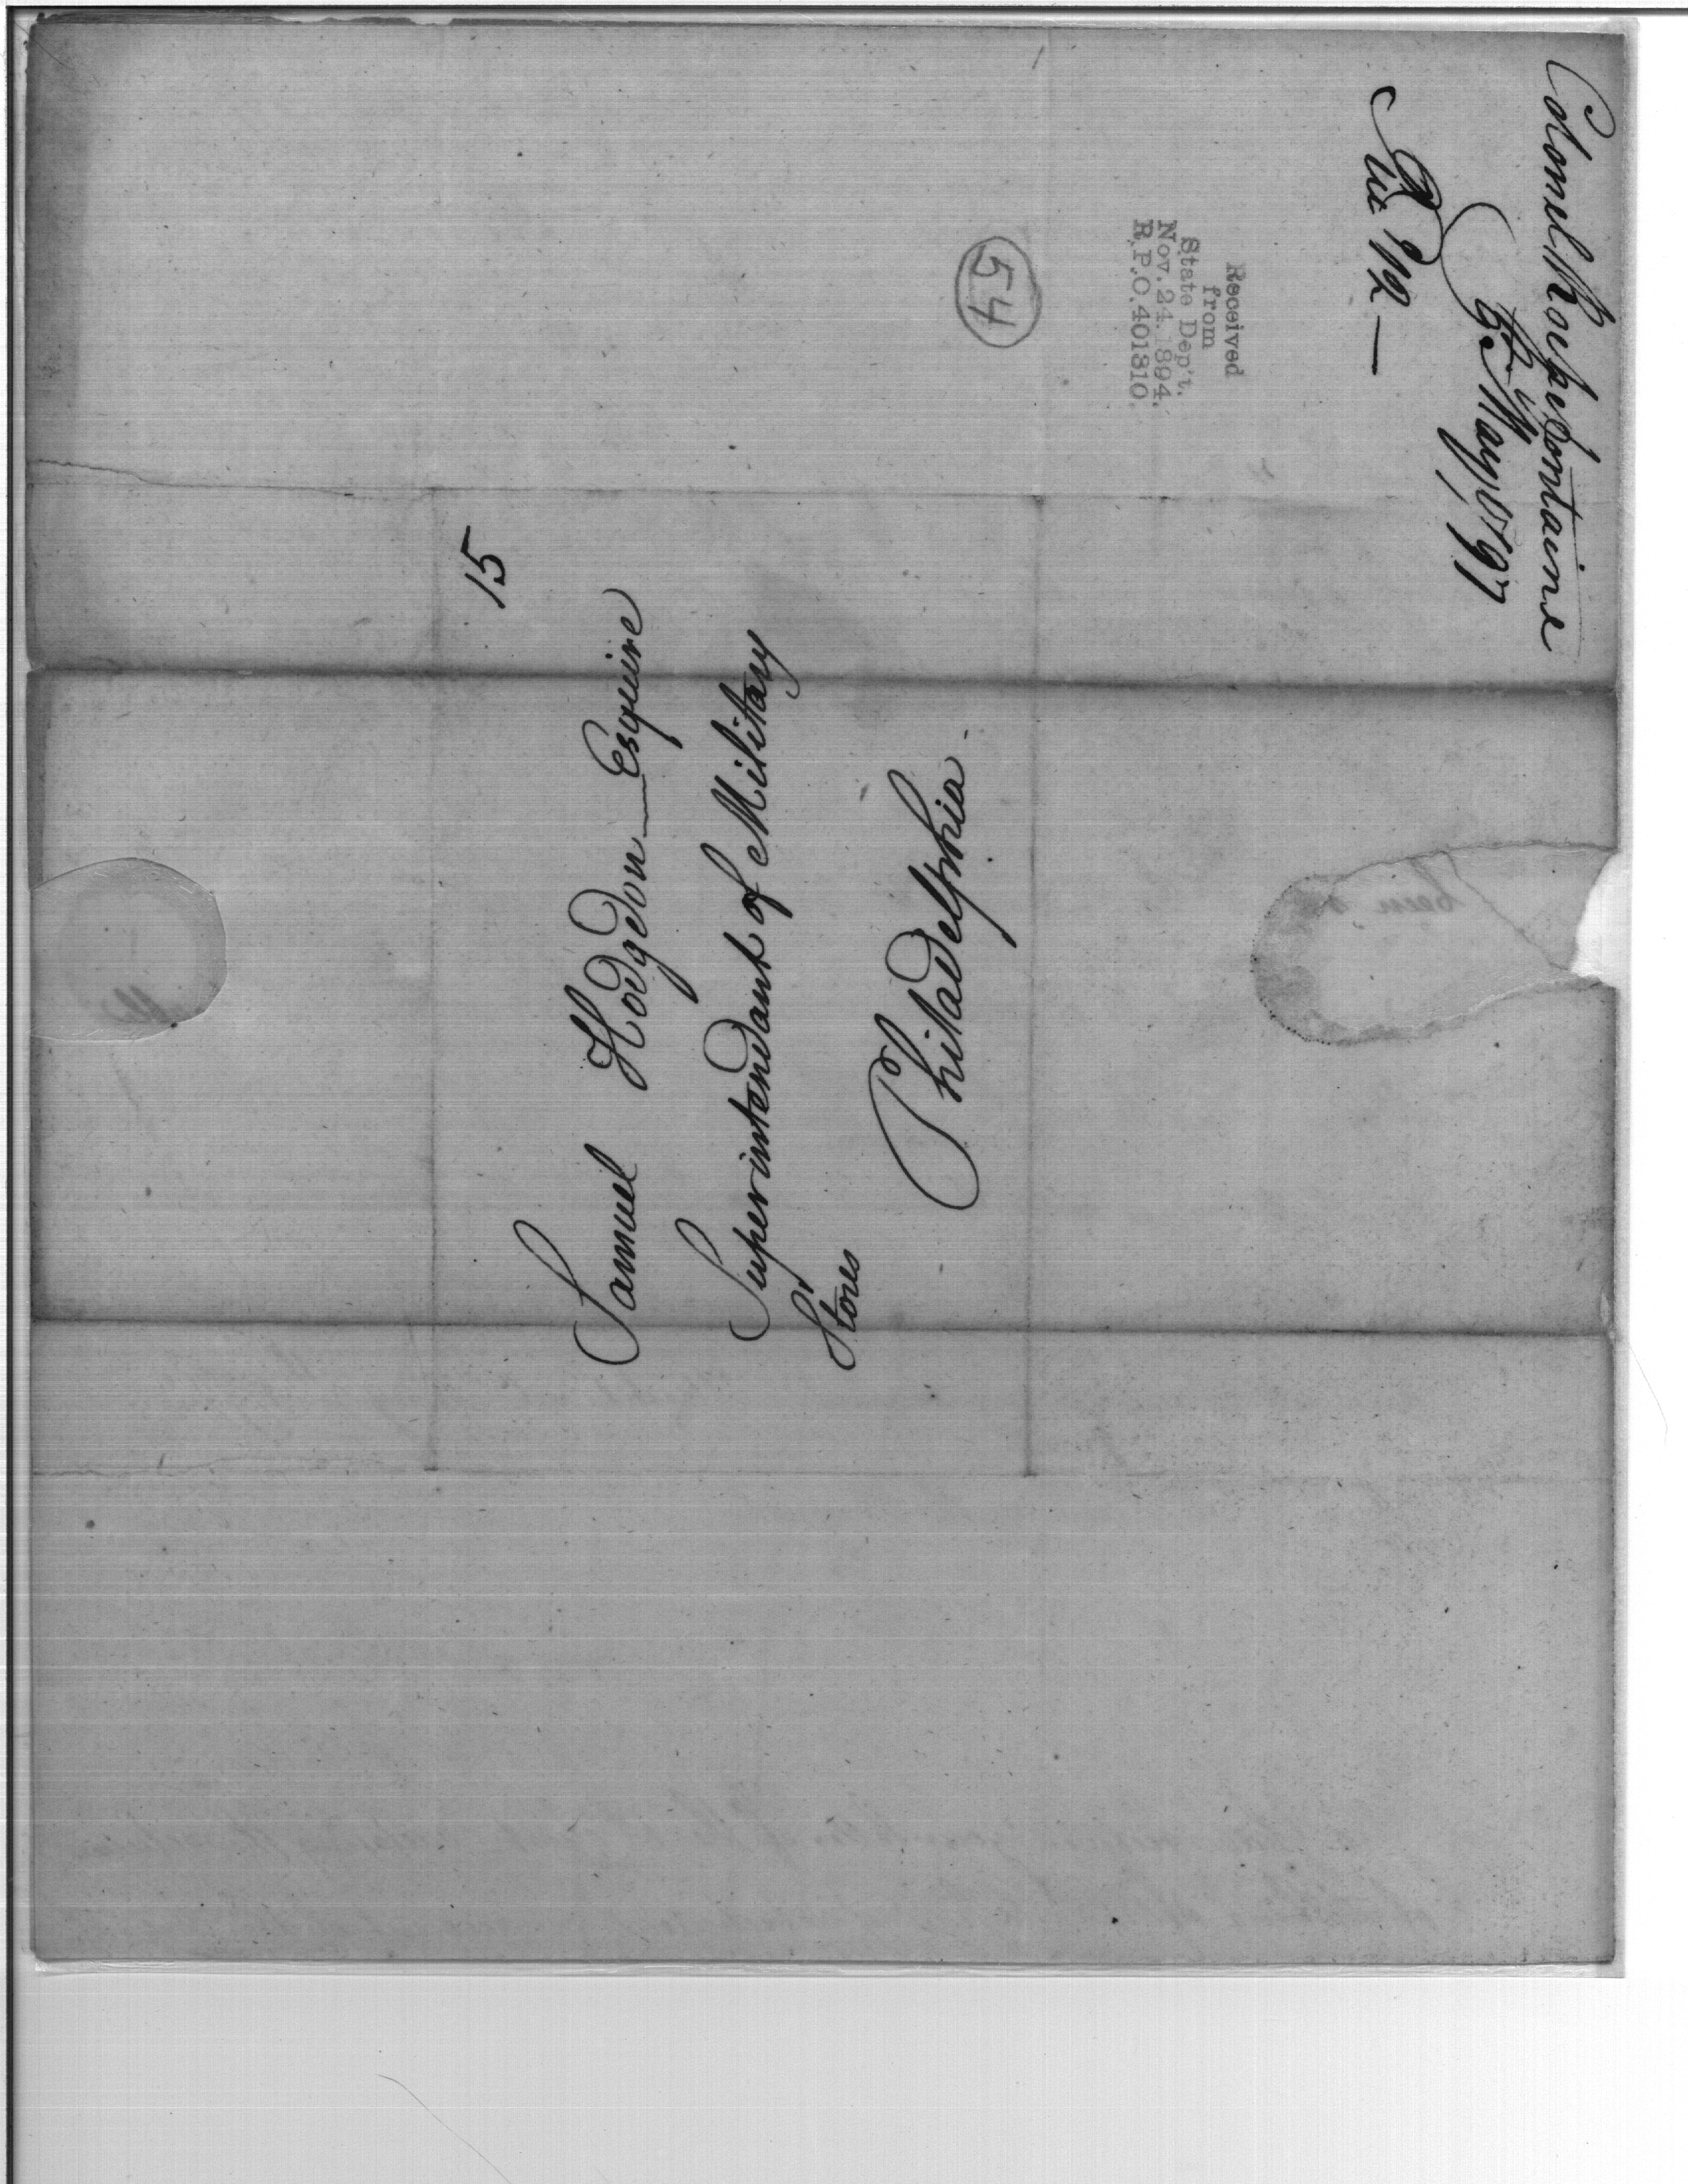 Colonel Rochefontaine
May 1797
Received
from
State Dep't.
Nov. 24. 1894.
R.P.O. 401310.
54
15
Samuel Hodgdon Esquire
Superintendant of Military
Stores
Philadelphia.